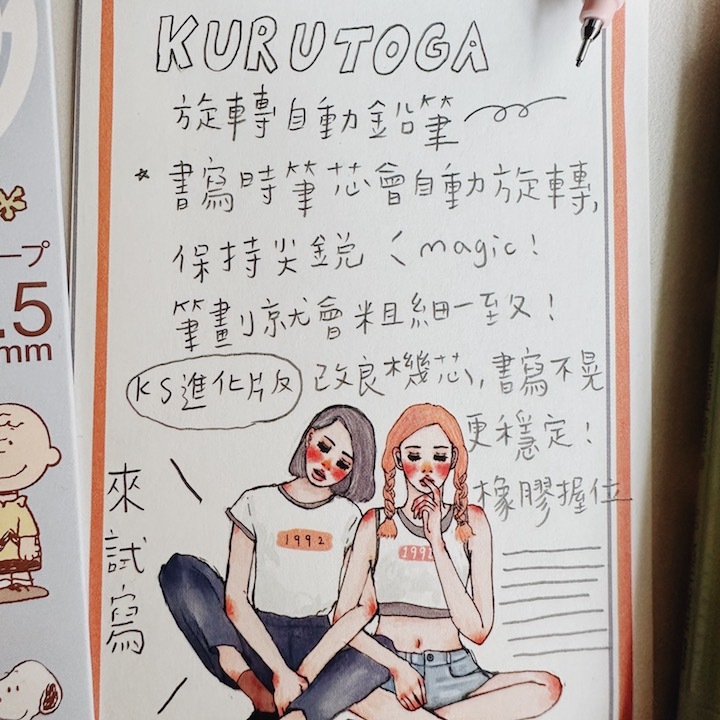 KURUTOGA
旋轉自動鉛筆
書寫時筆芯會自動旋轉,
保持尖銳 magic!
筆劃就會粗細一致!
KS進化版 改良機芯,書寫不晃
更穩定!
橡膠握位
來試寫
1992
1992
ープ
.5
mm